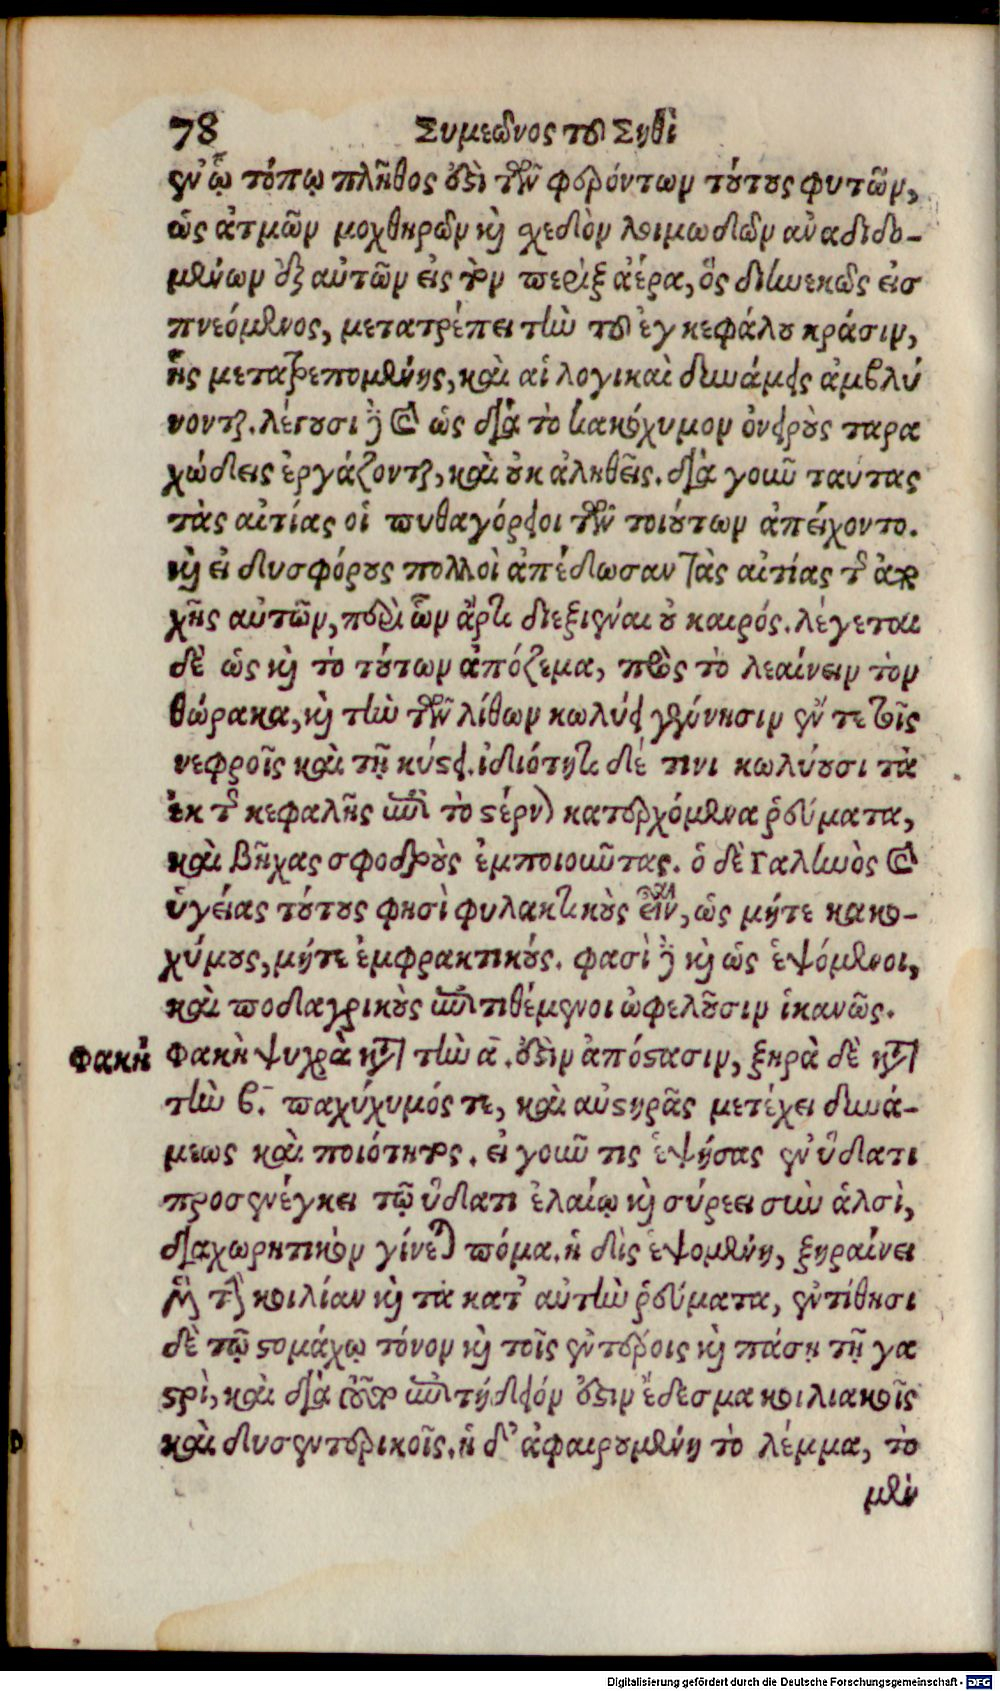 78 Συμεῶνος τοῦ Σηθὶ
ἐν ᾧ τόπῳ πλῆθος ἐστὶ τῶν φερόντων τούτους φυτῶν,
ὡς ἀτμῶν μοχθηρῶν καὶ σχεδὸν λοιμωδῶν ἀναδιδο-
μένων ἐξ αὐτῶν εἰς τὸν περὶξ ἀέρα, ὅς διηνεκῶς εἰσ
πνεόμενος, μετατρέπει τὴν τοῦ ἐγκεφάλου κράσιν,
ἧς μετατρεπομένης, καὶ αἱ λογικαὶ δυνάμεις ἀμβλύ
νονται. λέγουσι δὲ καὶ ὡς διὰ τὸ κακόχυμον ὀνείρους ταρα
χώδεις ἐργάζονται, καὶ οὐκ ἀληθεῖς. διὰ γοῦν ταύτας
τὰς αἰτίας οἱ πυθαγόρειοι τῶν τοιούτων ἀπείχοντο.
καὶ εἰ δυσφόρους πολλοὶ ἀπέδωσαν τὰς αἰτίας τῆς ἀρ
χῆς αὐτῶν, περὶ ὧν ἄρτι διεξιέναι οὐ καιρός. λέγεται
δὲ ὡς καὶ τὸ τούτων ἀπόζεμα, πρὸς τὸ λεαίνειν τὸν
θώρακα, καὶ τὴν τῶν λίθων κωλύει γέννησιν ἔν τε τοῖς
νεφροῖς καὶ τῇ κύστει. ἰδιότητι δέ τινι κωλύουσι τὰ
ἐκ τῆς κεφαλῆς ἐπὶ τὸ στέρνον κατερχόμενα ῥεύματα,
καὶ βῆχας σφοδροὺς ἐμποιοῦντας. ὁ δὲ Γαληνὸς καὶ
ὑγείας τούτους φησὶ φυλακτικοὺς εἶναι, ὡς μήτε κακο-
χύμους, μήτε ἐμφρακτικούς. φασὶ δὲ καὶ ὡς ἑψόμενοι,
καὶ ποδαγρικοὺς ἐπιτιθέμενοι ὠφελοῦσιν ἱκανῶς.
Φακὴ Φακὴ ψυχρὰ κατὰ τὴν α. ἐστὶν ἀπόστασιν, ξηρὰ δὲ κατὰ
τὴν β. παχύχυμός τε, καὶ αὐστηρᾶς μετέχει δυνά-
μεως καὶ ποιότητος. εἰ γοῦν τις ἑψήσας ἐν ὕδατι
προσενέγκει τῷ ὕδατι ἐλαίῳ καὶ σύρει σὺν ἁλσὶ,
διαχωρητικὸν γίνεται πόμα. ἡ δὶς ἑψομένη, ξηραίνει
μὲν τὴν κοιλίαν καὶ τὰ κατ' αὐτὴν ῥεύματα, ἐντίθησι
δὲ τῷ στομάχῳ τόνον καὶ τοῖς ἐντέροις καὶ πάσῃ τῇ γα
στρὶ, καὶ διὰ τοῦτο ἐπιτήδειόν ἐστιν ἔδεσμα κοιλιακοῖς
καὶ δυσεντερικοῖς. ἡ δ' ἀφαιρουμένη τὸ λέμμα, τὸ
μὲν
Digitalisierung gefördert durch die Deutsche Forschungsgemeinschaft - DFG